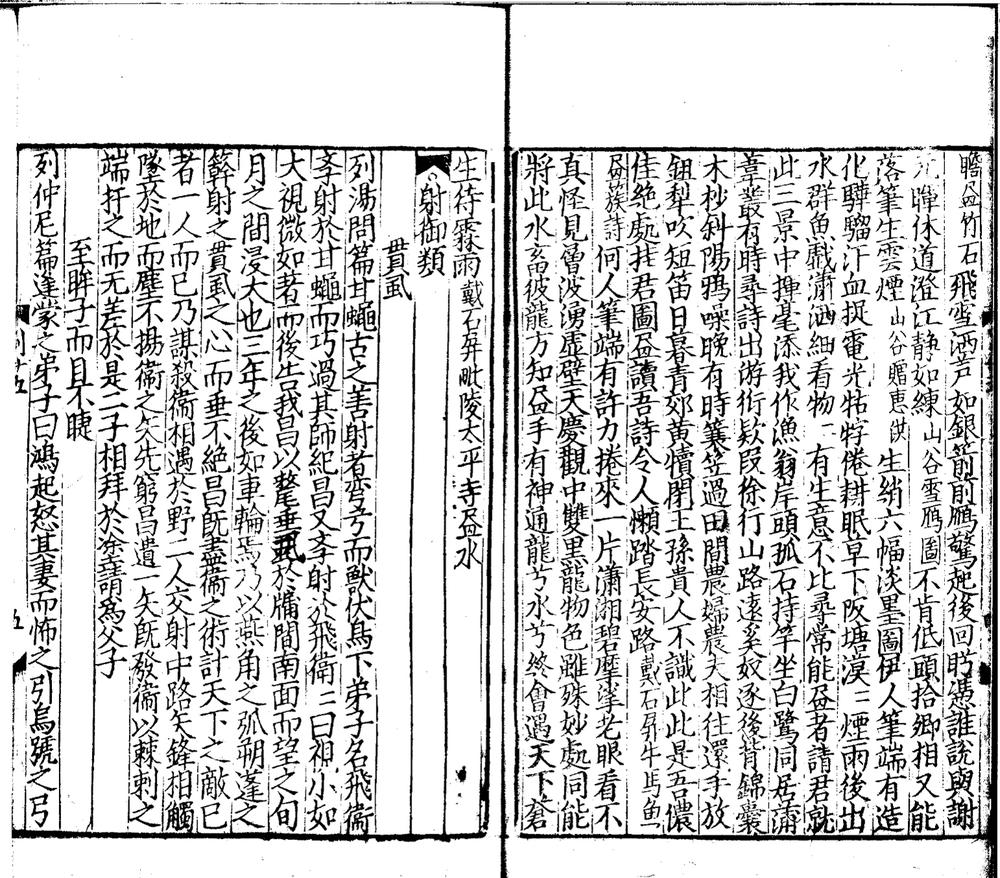 瞻画竹石飛雪洒芦如銀箭前鴈驚起後回眄憑誰說與謝
元暉休道澄江静如練山谷雪鴈圖不肯低頭拾卿相又能
落筆生雲煙山谷贈惠洪生綃六幅淡墨圖伊人筆端有造
化驊騮汗血捉電光牯牸倦耕眠草下陂塘漠二煙雨後出
水群魚戲瀟洒細看物二有生意不比尋常能画者請君就
此三景中揮毫添我作漁翁岸頭孤石持竿坐白鷺同居蒲
葦叢有時尋詩出游衍欵段徐行山路遠奚奴逐後背錦囊
木杪斜陽鴉噪晚有時蓑笠過田間農婦農夫相往還手放
鈕犁吹短笛日暮青郊黄犢閑王孫貴人不識此此是吾儂
佳絶處挂君圖画讀吾詩令人懶踏長安路戴石屏牛馬魚
画蔟詩何人筆端有許力捲來一片瀟湘碧摩挲老眼看不
真怪見層波湧虚壁天慶觀中雙黒龍物色雖殊妙處同能
將此水畜彼龍方知画手有神通龍兮水兮終會遇天下蒼
生待霖雨戴石屏毗陵太平寺画水
射御類
貫虱
列湯問篇甘蠅古之善射者彎弓而獸伏鳥下弟子名飛衛
孝射於甘蠅而巧過其師紀昌又孝射於飛衛二曰視小如
大視微如著而後告我昌以氂垂虱於牖間南面而望之旬
月之間浸大也三年之後如車輪焉乃以燕角之弧朔蓬之
簳射之貫虱之心而垂不絶昌既盡衛之術計天下之敵已
者一人而已乃謀殺衛相遇於野二人交射中路矢鋒相觸
墜於地而塵不揚衛之矢先窮昌遺一矢既發衛以棘刺之
端扞之而无差於是二子相拜於塗請為父子
至眸子而目不睫
列仲尼篇逢蒙之弟子曰鴻起怒其妻而怖之引烏號之弓
五